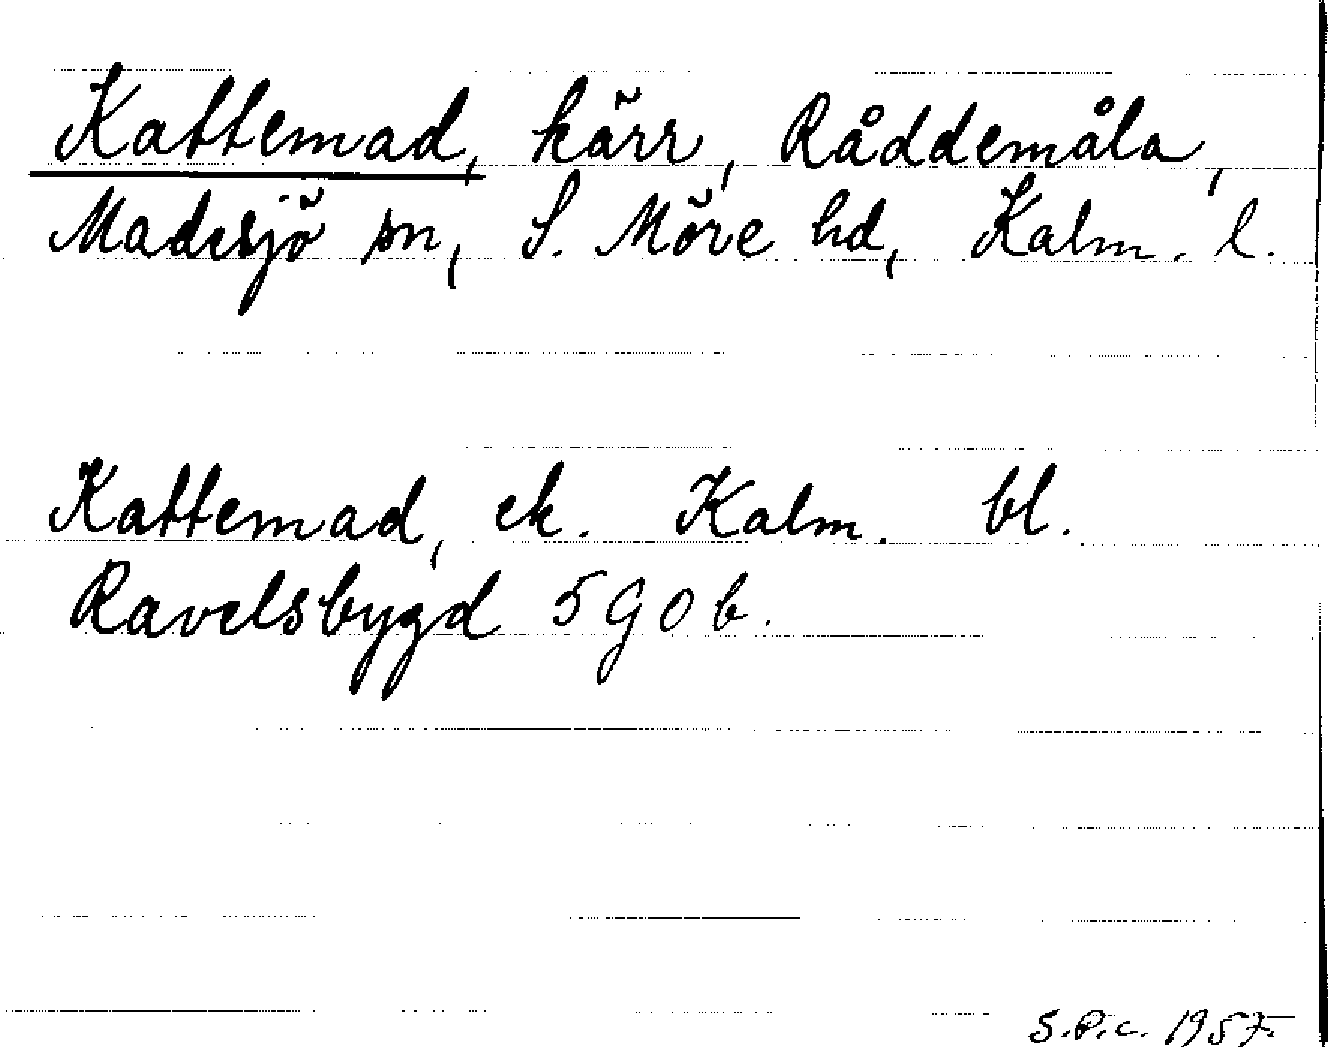 Kattemad, kärr, Råddemåla,
Madesjö sn, S. Möre hd, Kalm. l.
Kattemad, ek. Kalm. bl.
Ravelsbygd 5 G 0 b.
S.P.C. 1957.